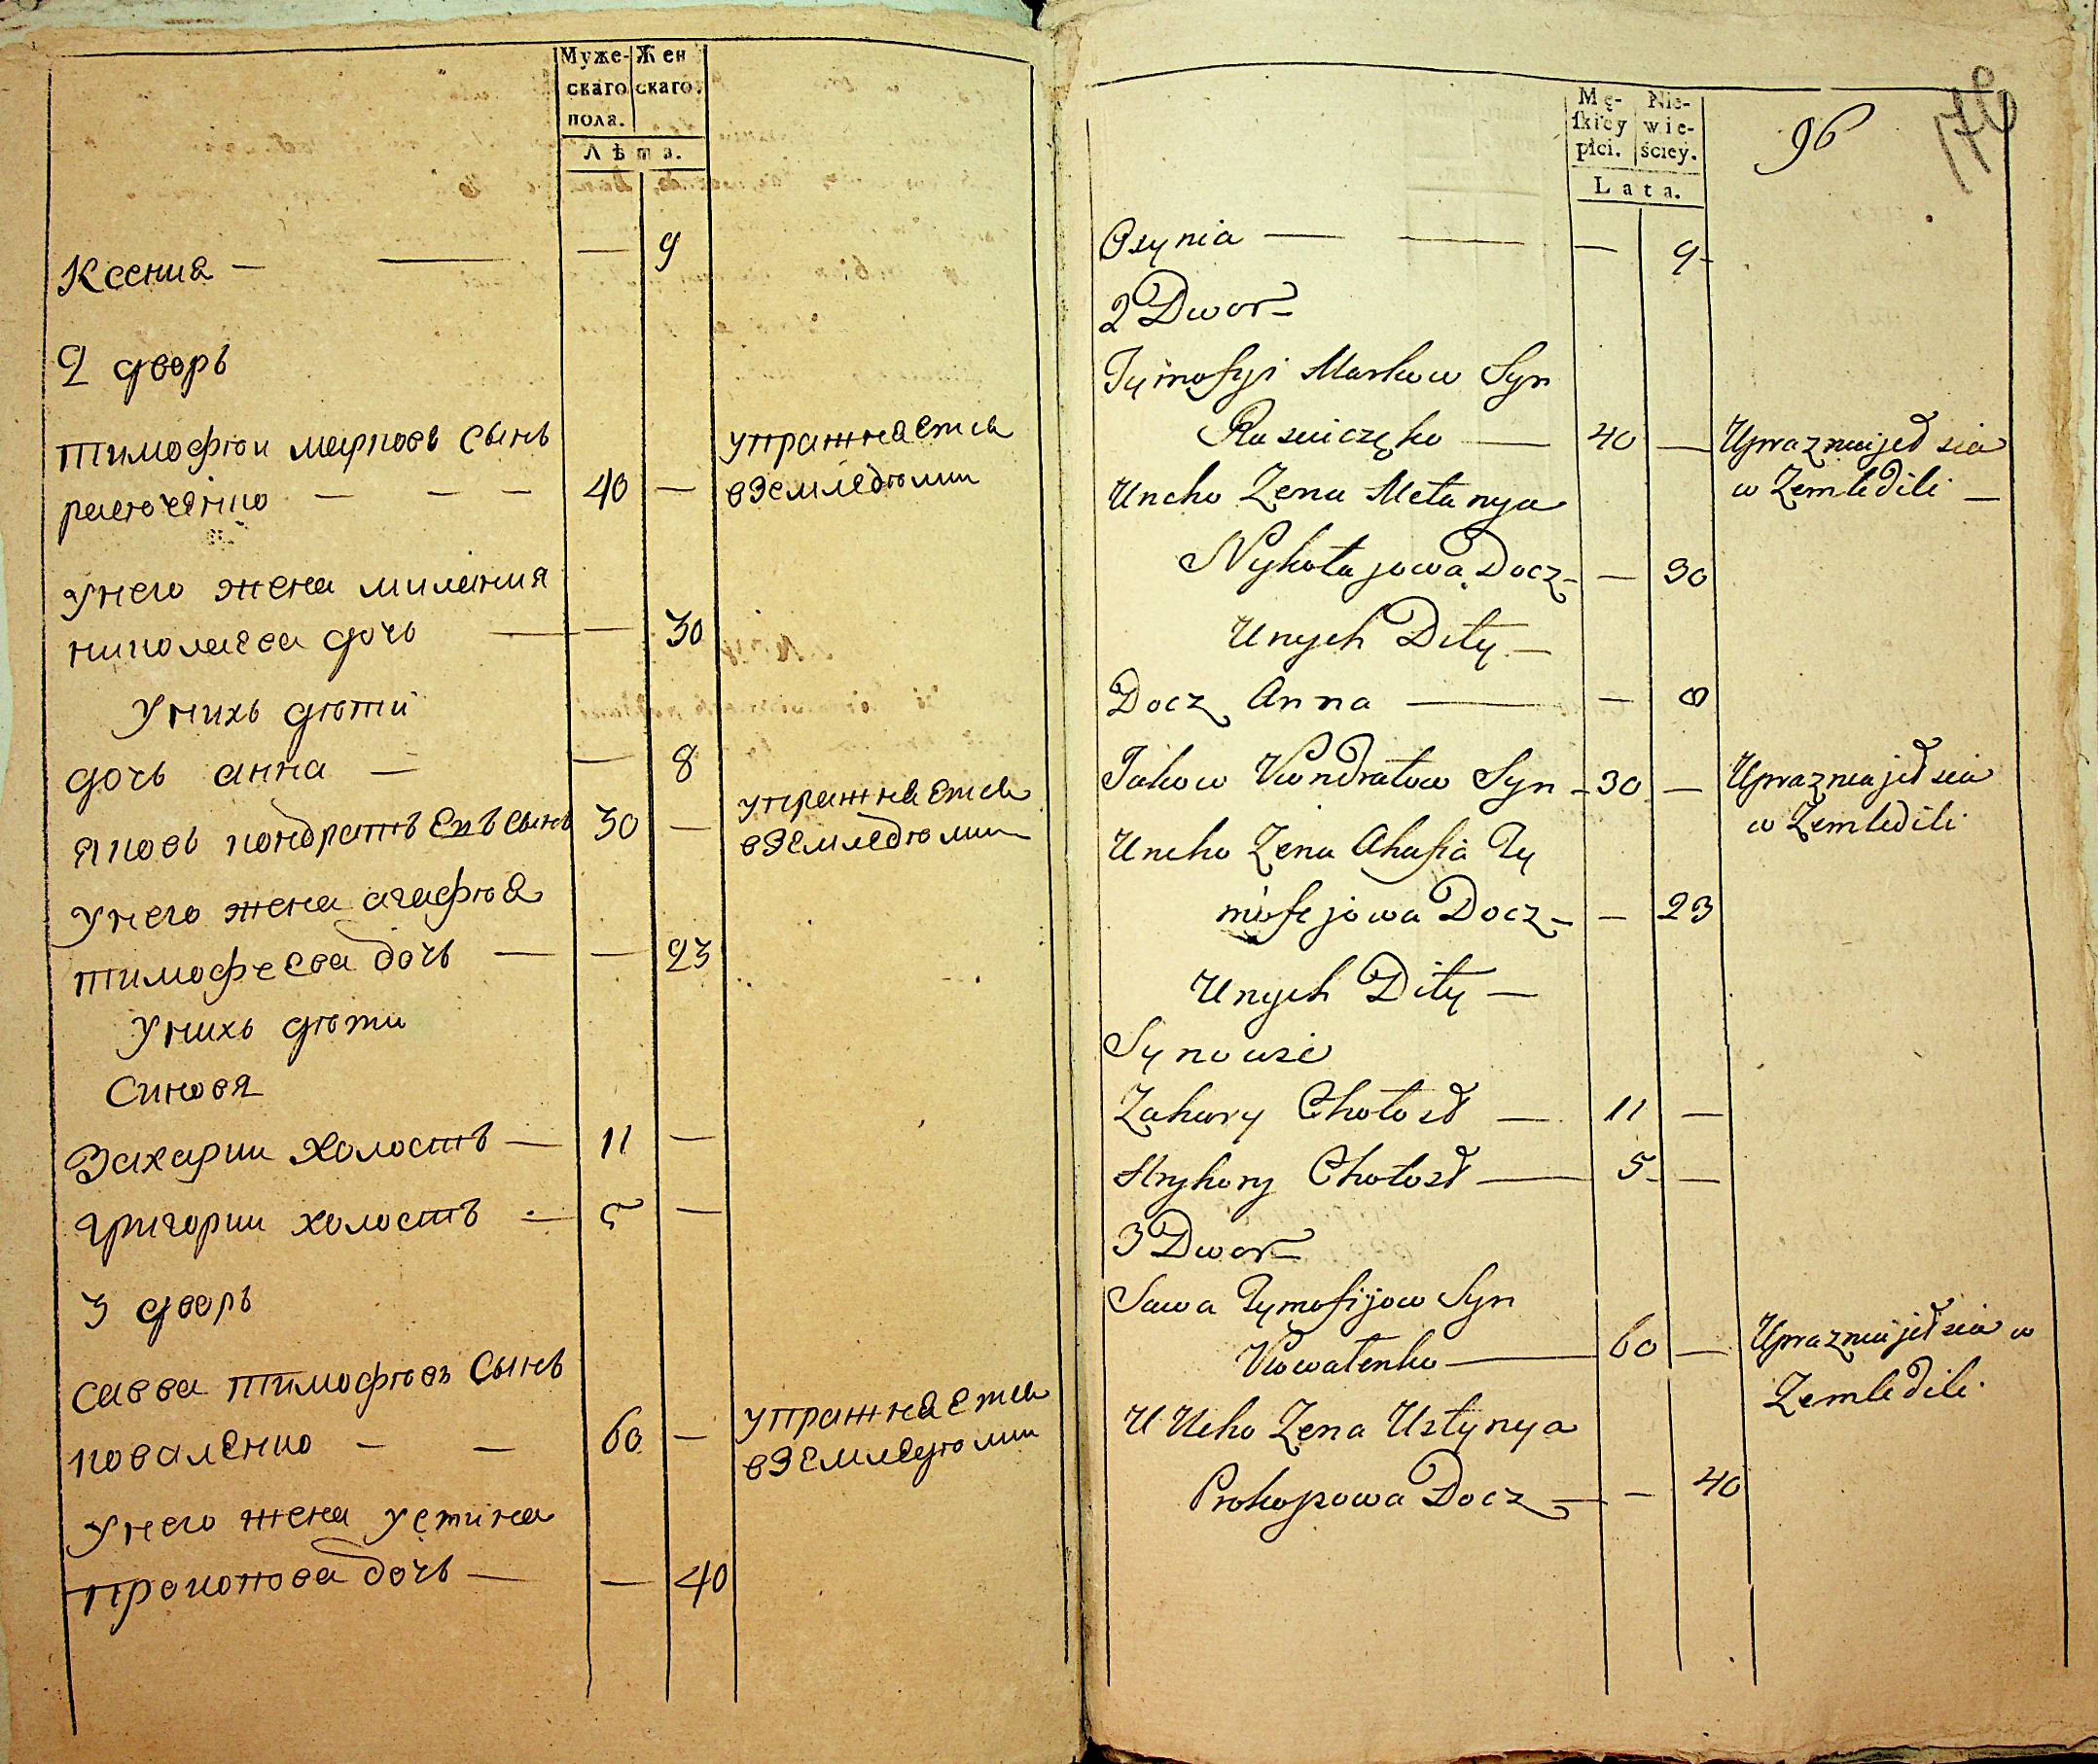 Муже- Жен
скаго скаго.
пола.
Лѣта.
Ксения — — — 9
2 дворъ
тимофѣи марковъ сынъ
расючѣнко — — — 40 — упражняется
взємледѣлии
Унего жена милания
николаева дочь — — 30
Унихъ дѣти
дочь анна — — 8
яковъ кондратъевъ сынъ 30 — упражняется
вземледѣлии
Унего жена агафѣя
тимофеева дочь — — 23
Унихъ дѣти
Синовя
Захарии холостъ — 11 —
григории холостъ — 5 —
3 дворъ
савва тимофѣевъ сынъ
коваленко — — 60 — упражняется
вземледѣлии
Унего жена устина
прокопова дочь — — 40
Mę- Nie-
skiey wie-
płci. ściey.
Lata.
96
176
Oxynia — — — 9
2 Dwor
Tymofyi Markow Syn
40 — Uprazniajet sia
w Zemledili —
Uneho Zena Mełanya
Nykołajowa Docz — — 30
Unych Dity —
Docz Anna — — 8
Jakow Kondratow Syn — 30 — Uprazniajet sia
w Zemledili
Uneho Zena Ahafia Ty
mofejowa Docz — — 23
Unych Dity —
Synowie
Zahary Chołost — 11 —
Hryhory Chołost — 5 —
3 Dwor
Sawa Tymofijow Syn
Kowalenko — 60 — Uprazniajet sia w
Zemledili
U Neho Zena Ustynya
Prokopowa Docz — — 40